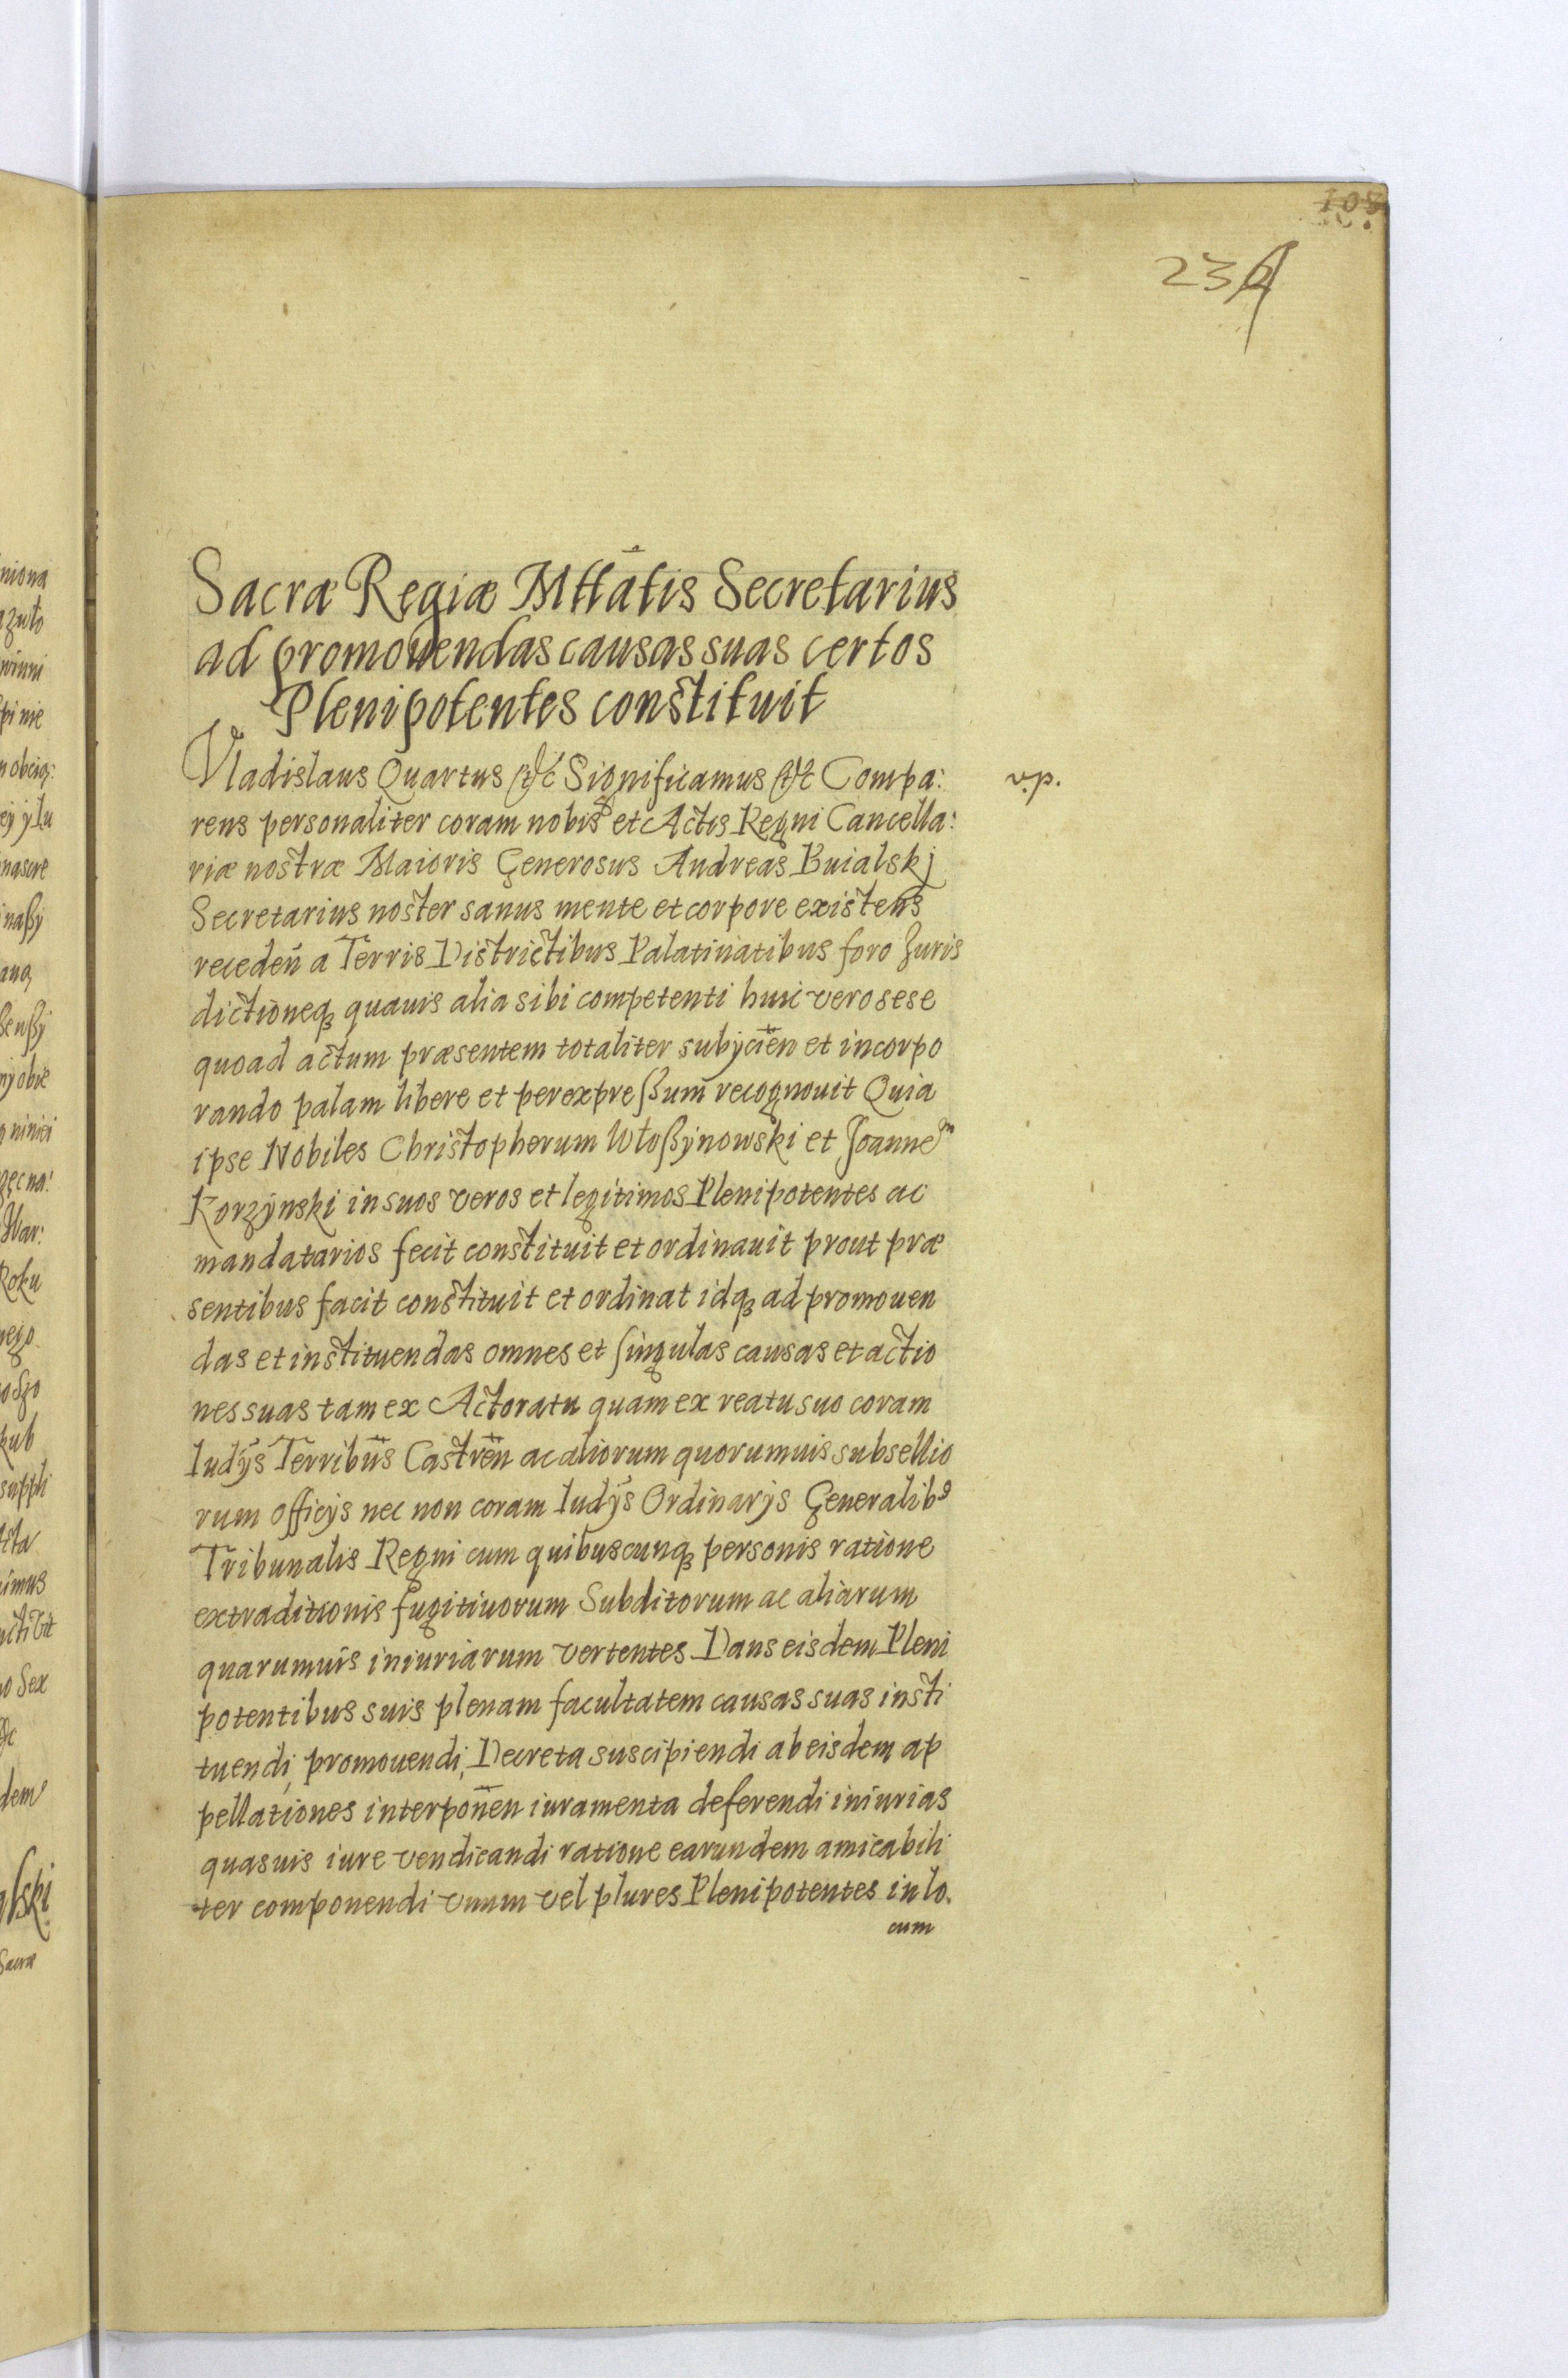 108
236
Sacræ Regiæ Mttãtis Secretarius
ad promovendas causas suas certos
Plenipotentes constituit
Vladislaus Quartus &c Significamus &c Compa:
rens personaliter coram nobis et Actis Regni Cancella:
riæ nostræ Maioris Generosus Andreas Buialskj
Secretarius noster sanus mente et corpore existens
receden̄ a Terris Districtibus Palatinatibus foro Juris
dictioneq; quauis alia sibi competenti huic vero sese
quoad actum præsentem totaliter subÿcien̄ et incorpo
rando palam libere et per expreßum recognouit Quia
ipse Nobiles Christophorum Włoßÿnowski et Joannem
Korzÿnski in suos veros et legitimos Plenipotentes ac
mandatarios fecit constituit et ordinauit prout præ
sentibus facit constituit et ordinat idq; ad promouen
das et instituendas omnes et singulas causas et actio
nes suas tam ex Actoratu quam ex reatu suo coram
Iudÿs Terribūs Castrēn ac aliorum quorumuis subsellio
rum officÿs nec non coram Iudÿs Ordinarÿs Generalib9
Tribunalis Regni cum quibuscunq; personis ratione
extraditionis fugitiuorum Subditorum ac aliarum
quarumuis iniuriarum vertentes Dans eisdem Pleni
potentibus suis plenam facultatem causas suas insti
tuendi, promouendi, Decreta suscipiendi ab eisdem ap
pellationes interponēn iuramenta deferendi iniurias
quasuis iure vendicandi ratione earundem amicabili
ter componendi vnum vel plures Plenipotentes in lo.
cum